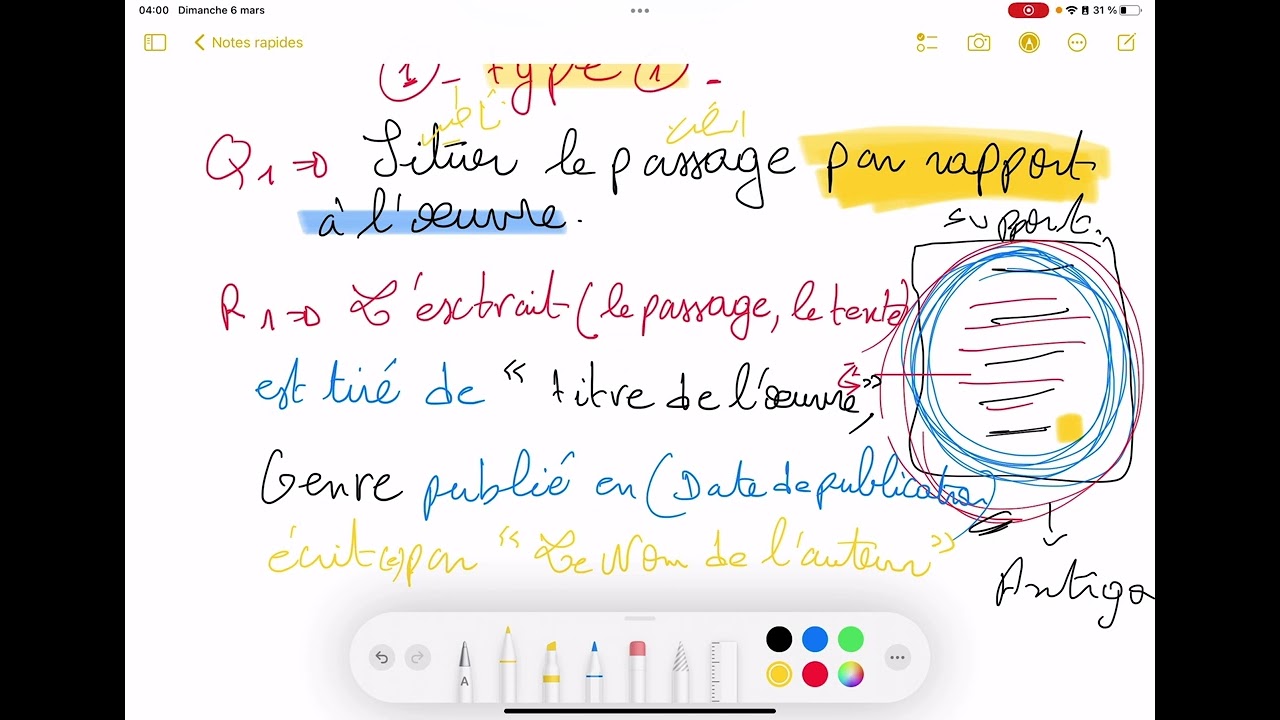 04:00 Dimanche 6 mars
31 %
Notes rapides
(1) - type (1) -
Q1 => Situer le passage par rapport
à l'œuvre.
support.
R1 => L'extrait (le passage, le texte)
est tiré de " titre de l'œuvre",
Genre publié en (Date de publication)
écrit(e) par " Le Nom de l'auteur"
Antigo
A